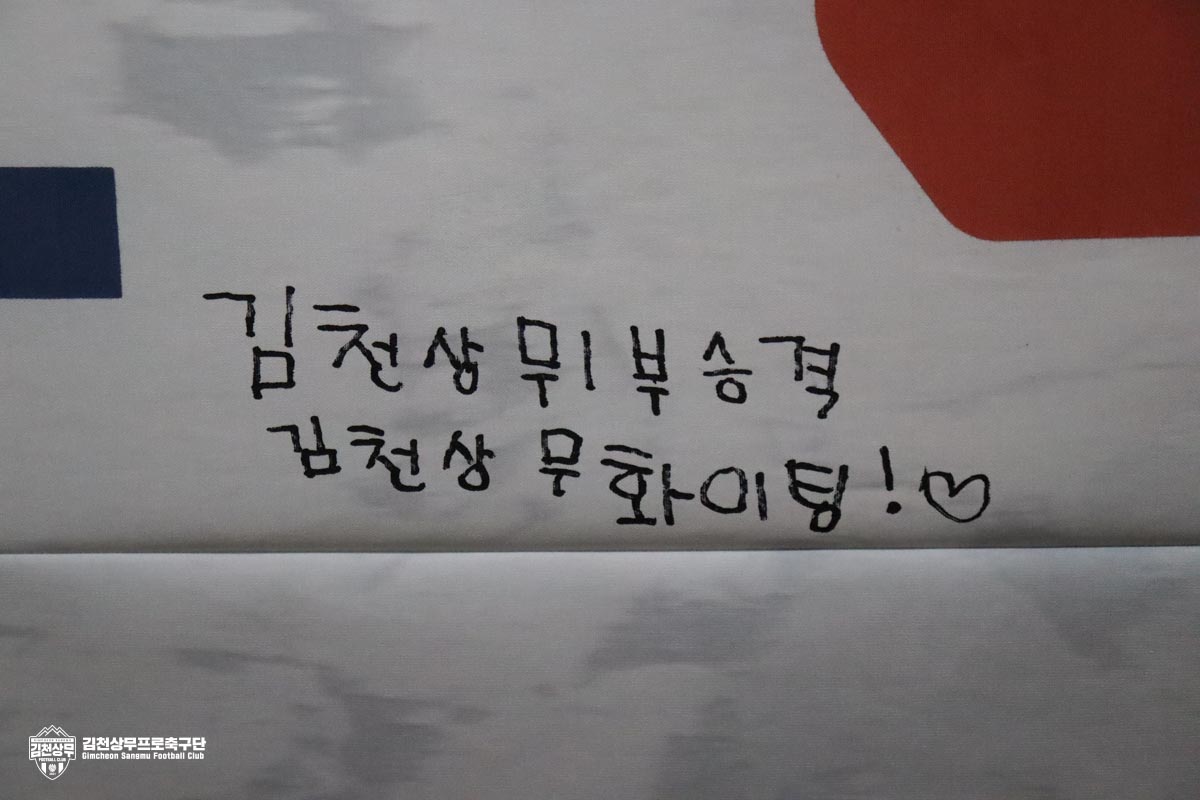 김천상무1부승격
김천상무화이팅!♡
김천상무
FOOTBALL CLUB
김천상무프로축구단
Gimcheon Sangmu Football Club